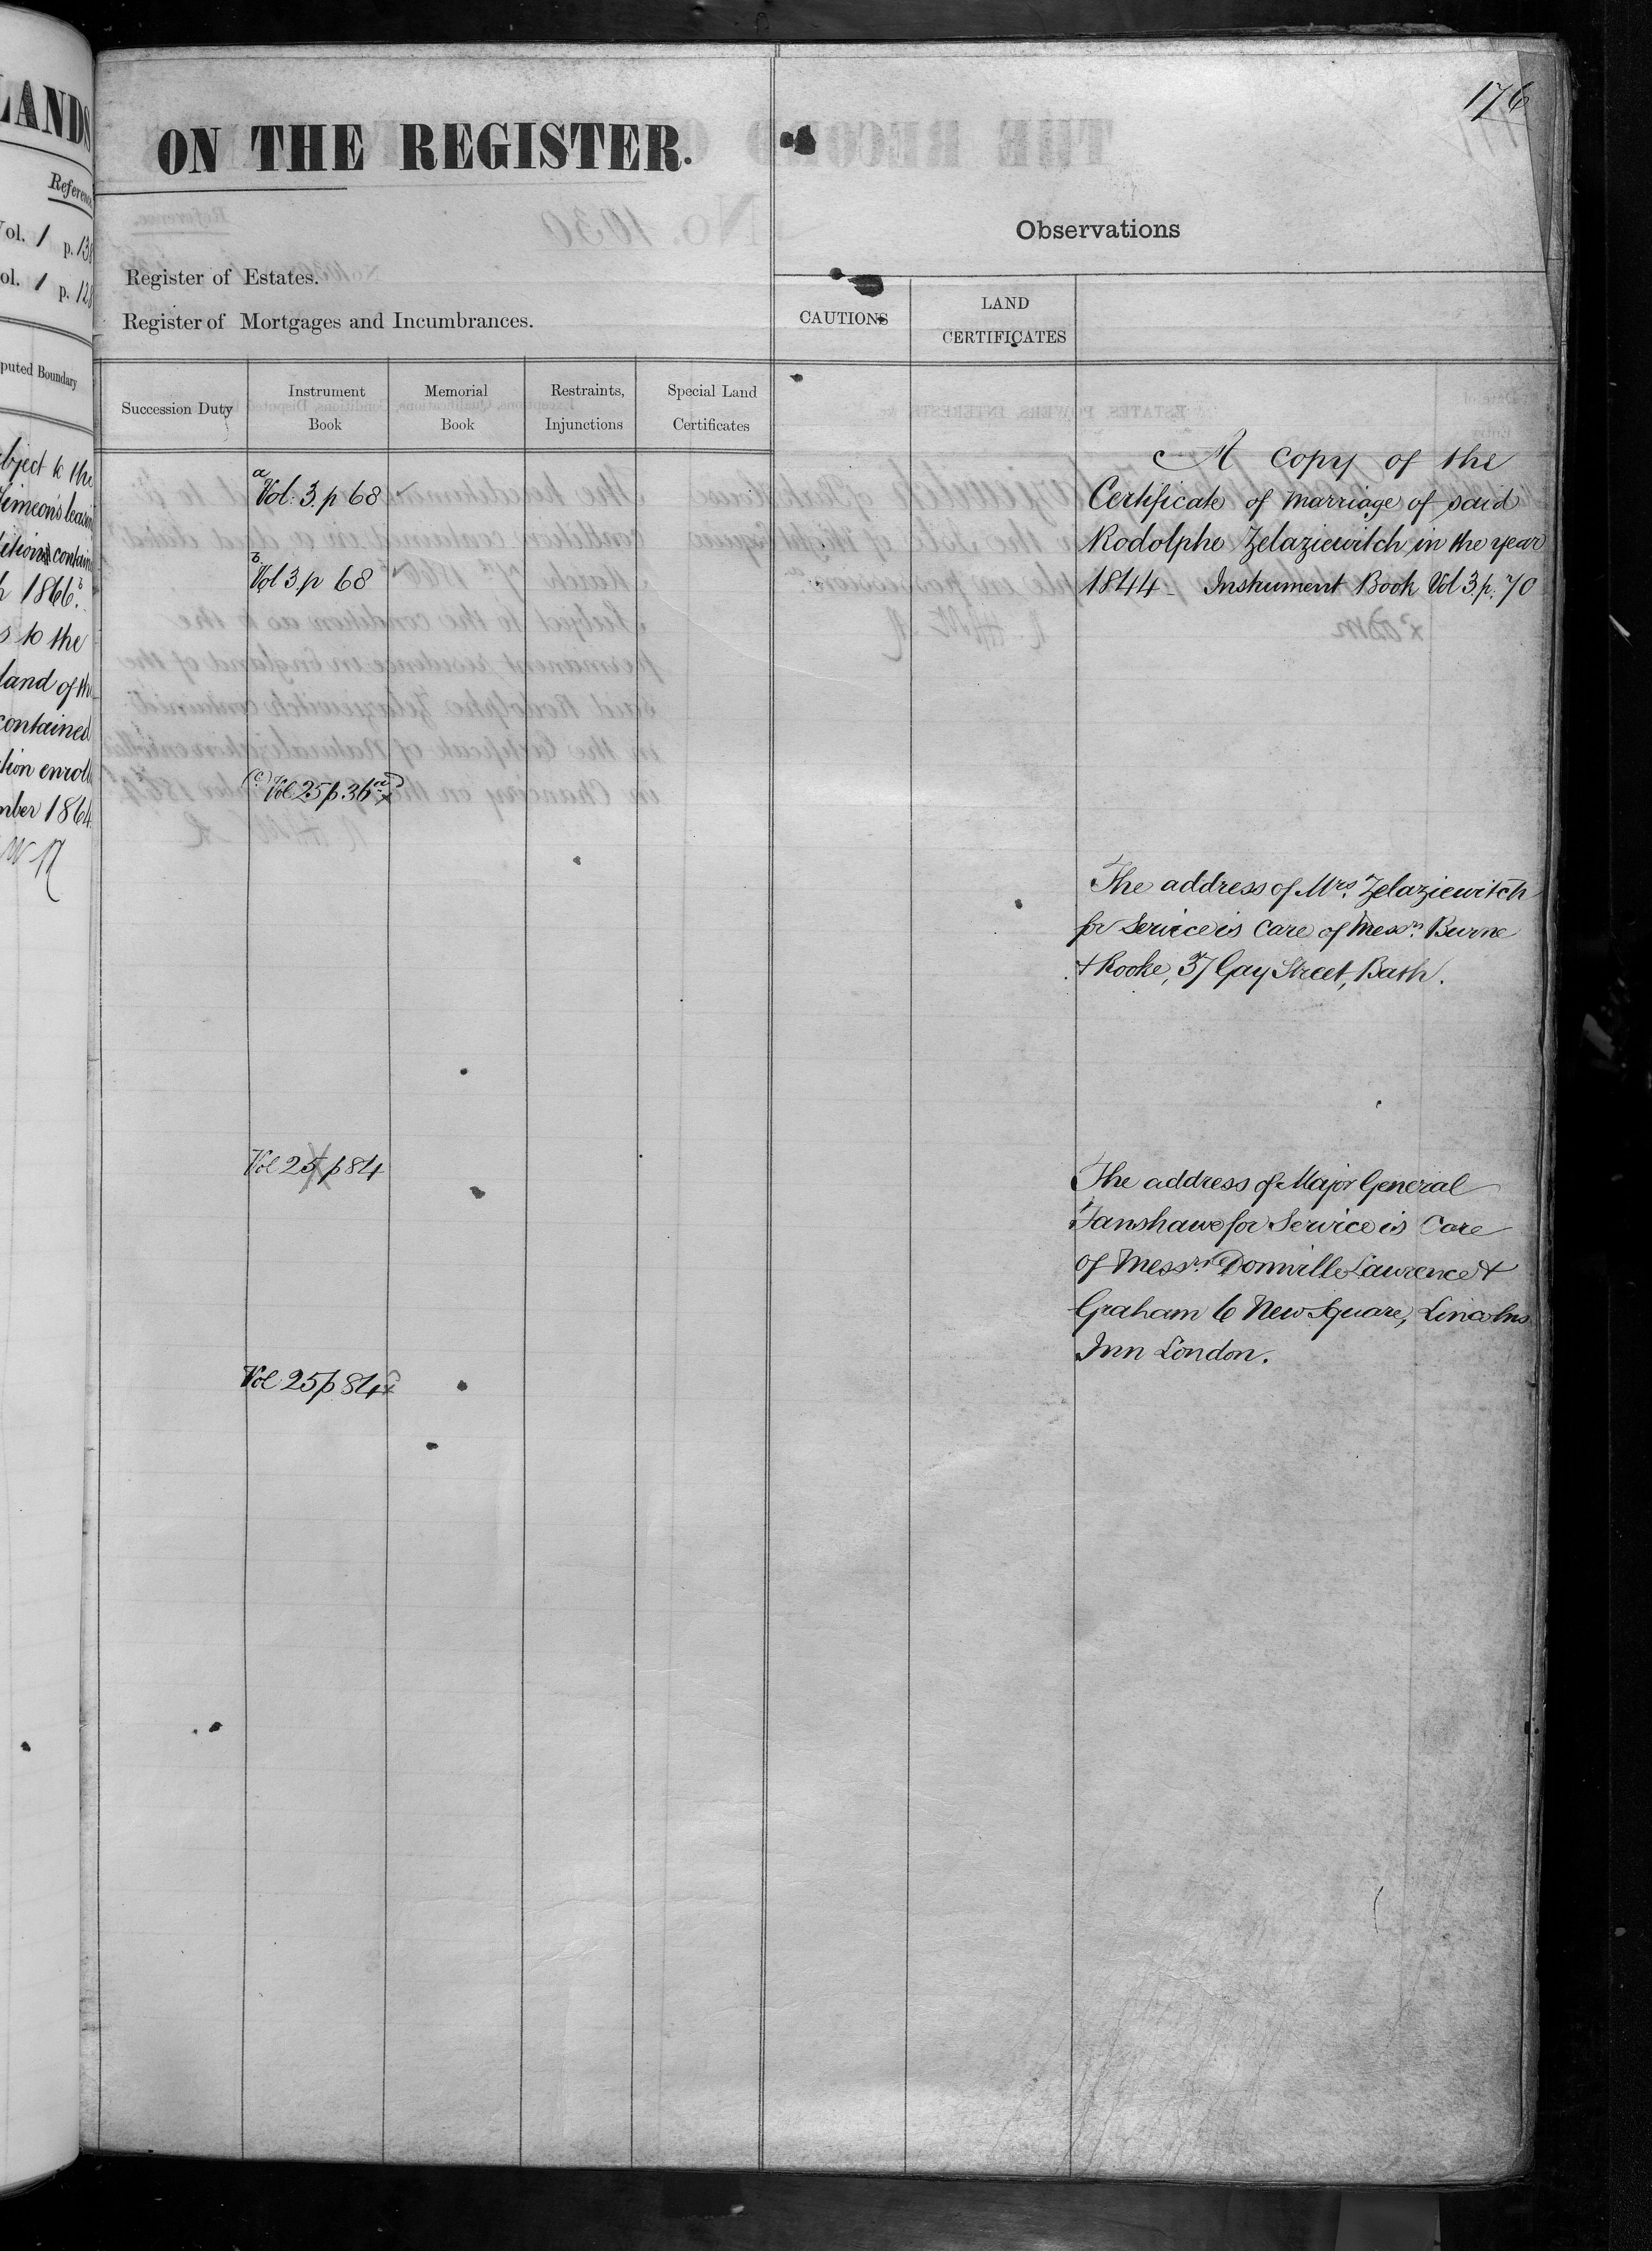 LANDS
Reference
Vol. 1 p. 13
Vol. 1 p. 128
puted Boundary
bject to the
Simeon's
contain
1866.
s to the
land of the
contained
tion enroll
mber 1864
176
ON THE REGISTER.
Register of Estates.
Register of Mortgages and Incumbrances.
Observations
CAUTIONS
LAND
CERTIFICATES
Succession Duty
Instrument
Book
Memorial
Book
Restraints,
Injunctions
Special Land
Certificates
a
Vol: 3. p 68
b.
Vol 3 p 68
(c) Vol 25 p 36
Vol 25 p 84
Vol 25 p 84
A copy of the
Certificate of Marriage of said
Rodolphe Zelaziewitch in the year
1844 - Instrument Book Vol 3. p. 70
The address of Mrs. Zelaziewitch
for Service is Care of Messrs. Burne
& Rooke, 37 Gay Street, Bath.
The address of Major General
Fanshawe for Service is Care
of Messrs. Domville Lawrence &
Graham 6 New Square, Lincolns
Inn London.